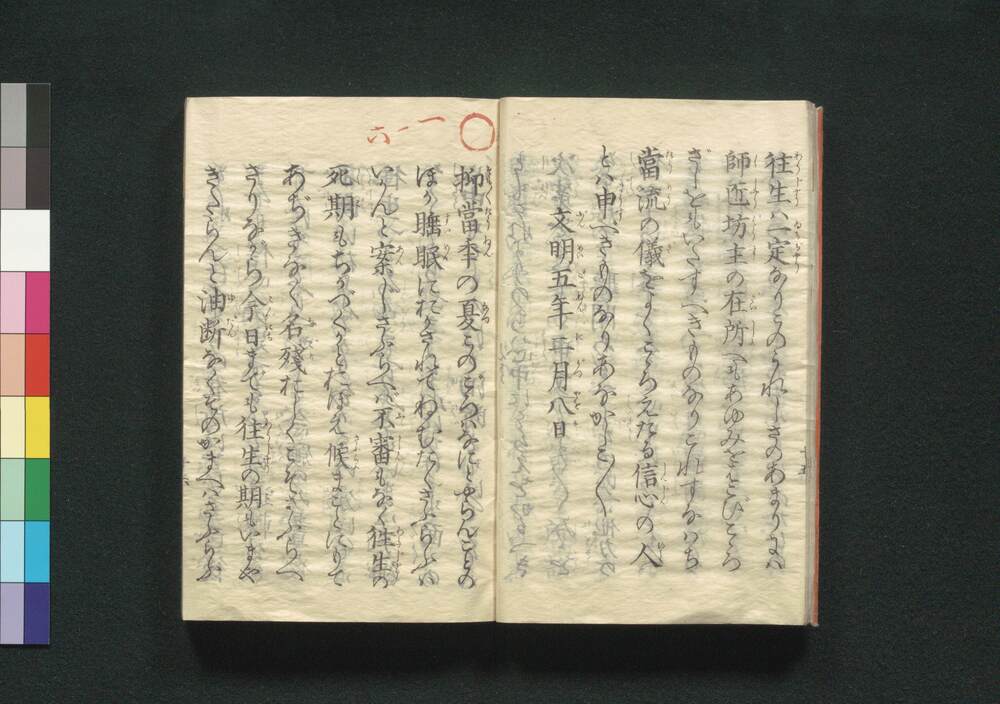 往生ハ一定なりとおもふうれしさのあまりにハ
師匠坊主の在所へもあゆみをはこびこゝろ
ざしをもいたすべきものなりこれすなはち
當流の儀をよくこゝろえたる信心の人
とハ申へきものなりあなかしこ〱
文明五年二月八日
一ー六
抑當年の夏このごろはなにとやらんことの
ほか睡眠におかされてねむたくさふらふハ
いかんと案しさふらへハ不審もなく往生の
死期もちかづくかとおぼえ候まことにもて
あぢきなく名殘おしくこそさふらへ
さりながら今日までも往生の期もいまや
きたらんと油断なくそのかまへハさふらふ